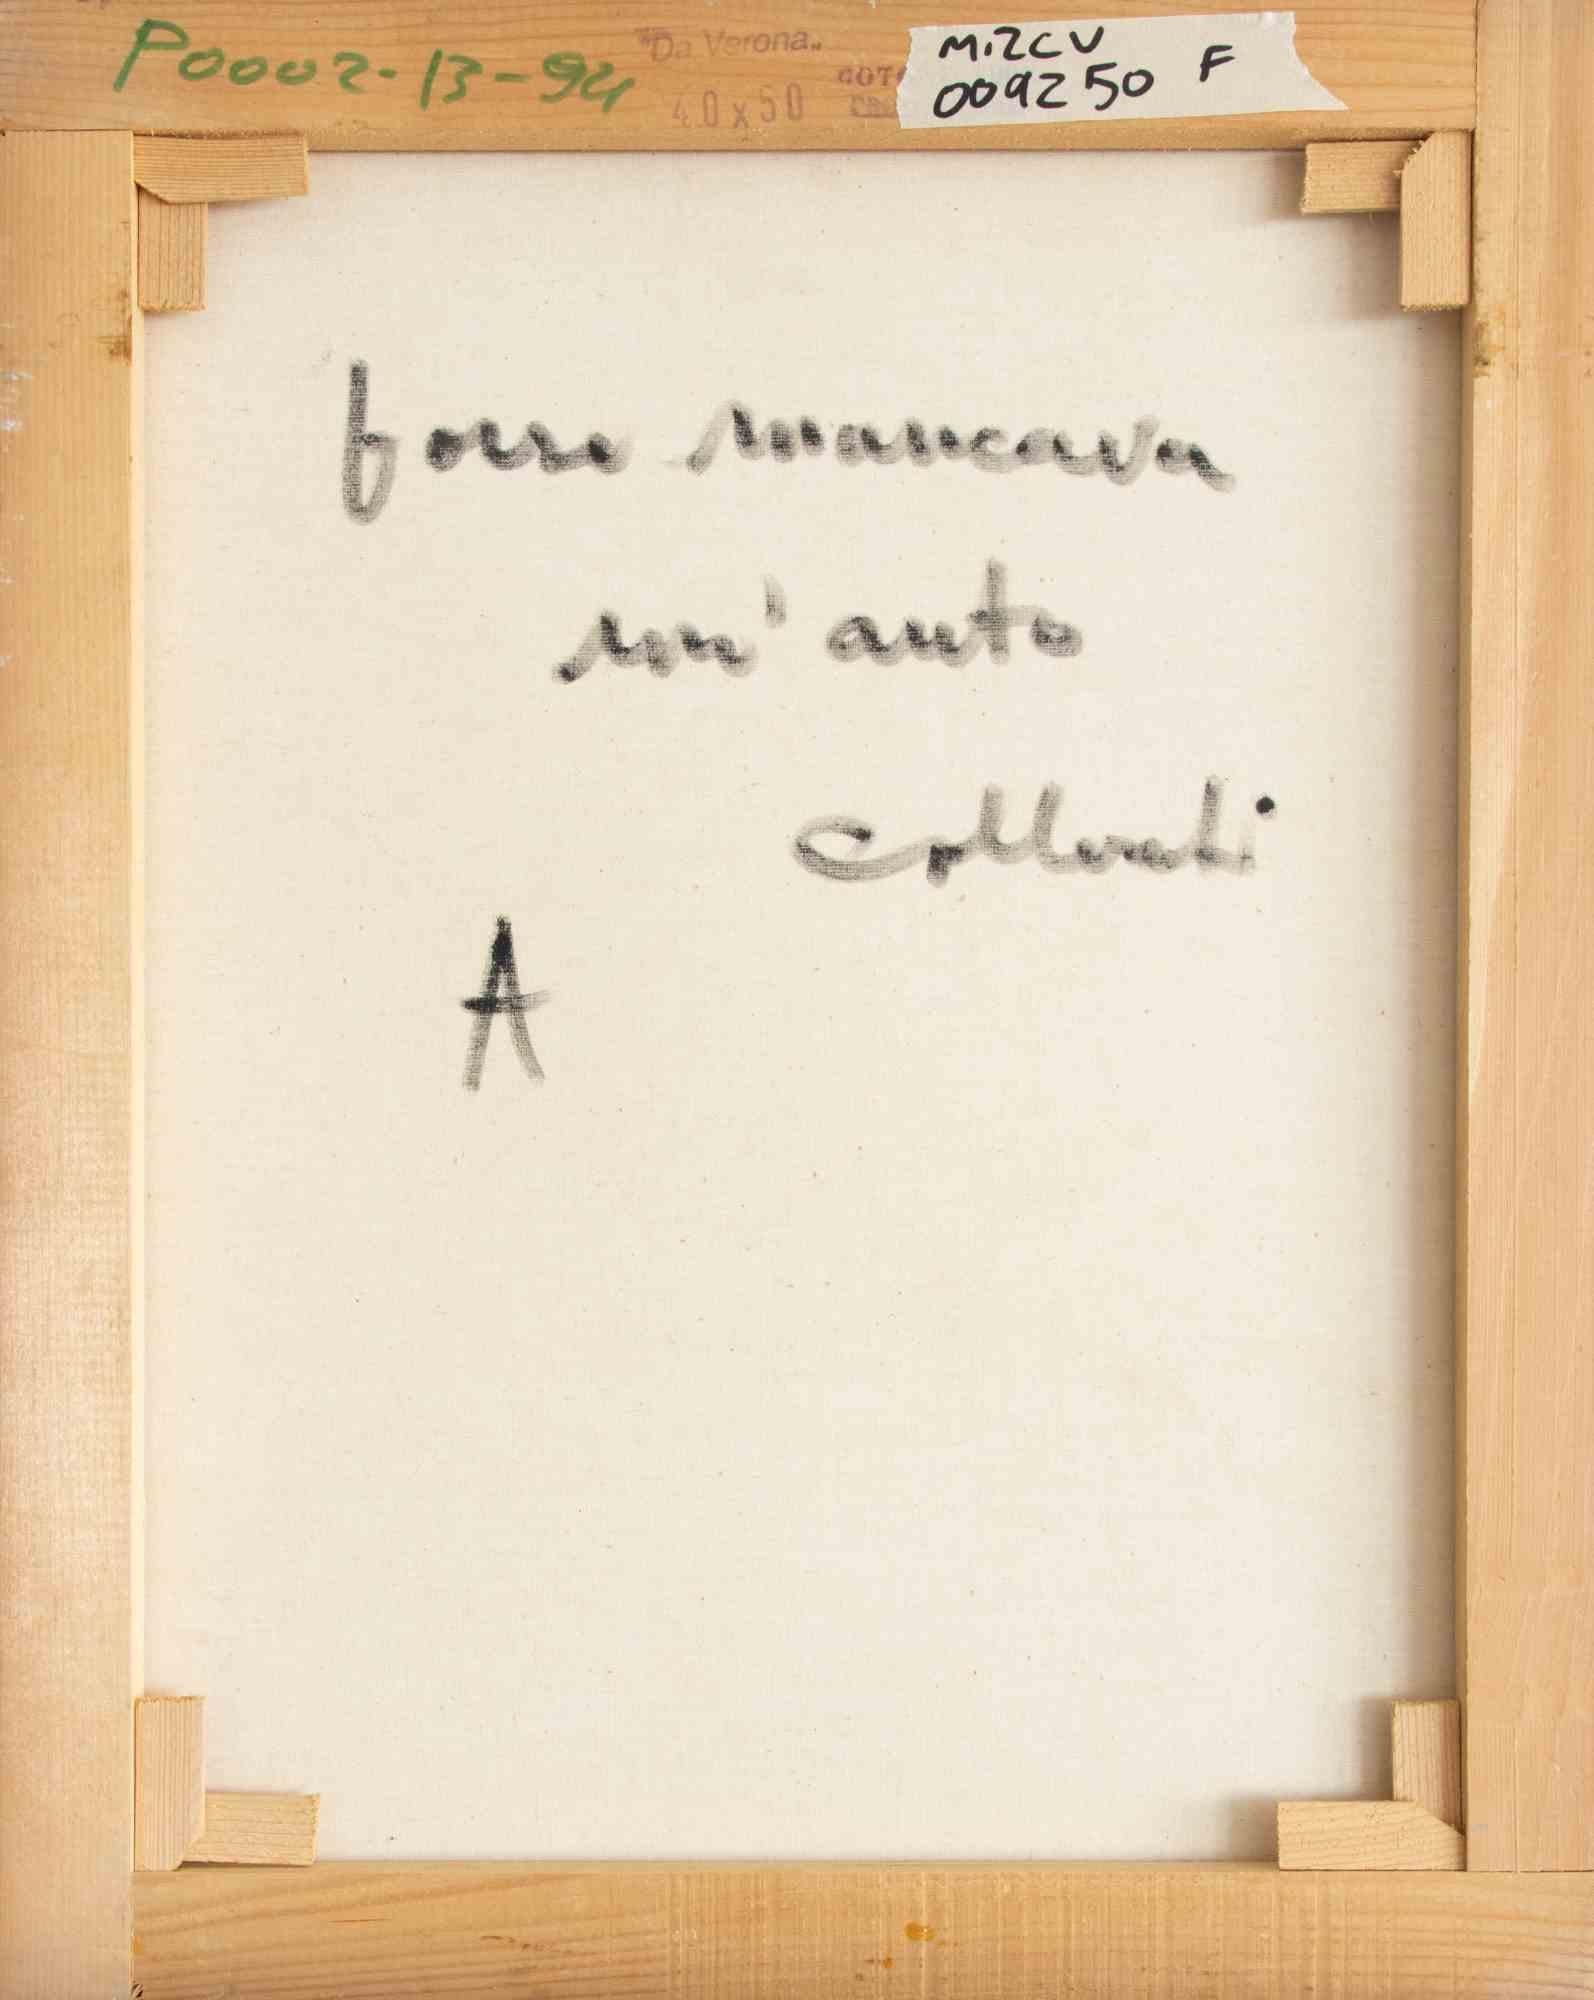 P0002-13-94
"Da Verona„
40x50
M.ZCV
009250 F
forse mancava
un' auto
A